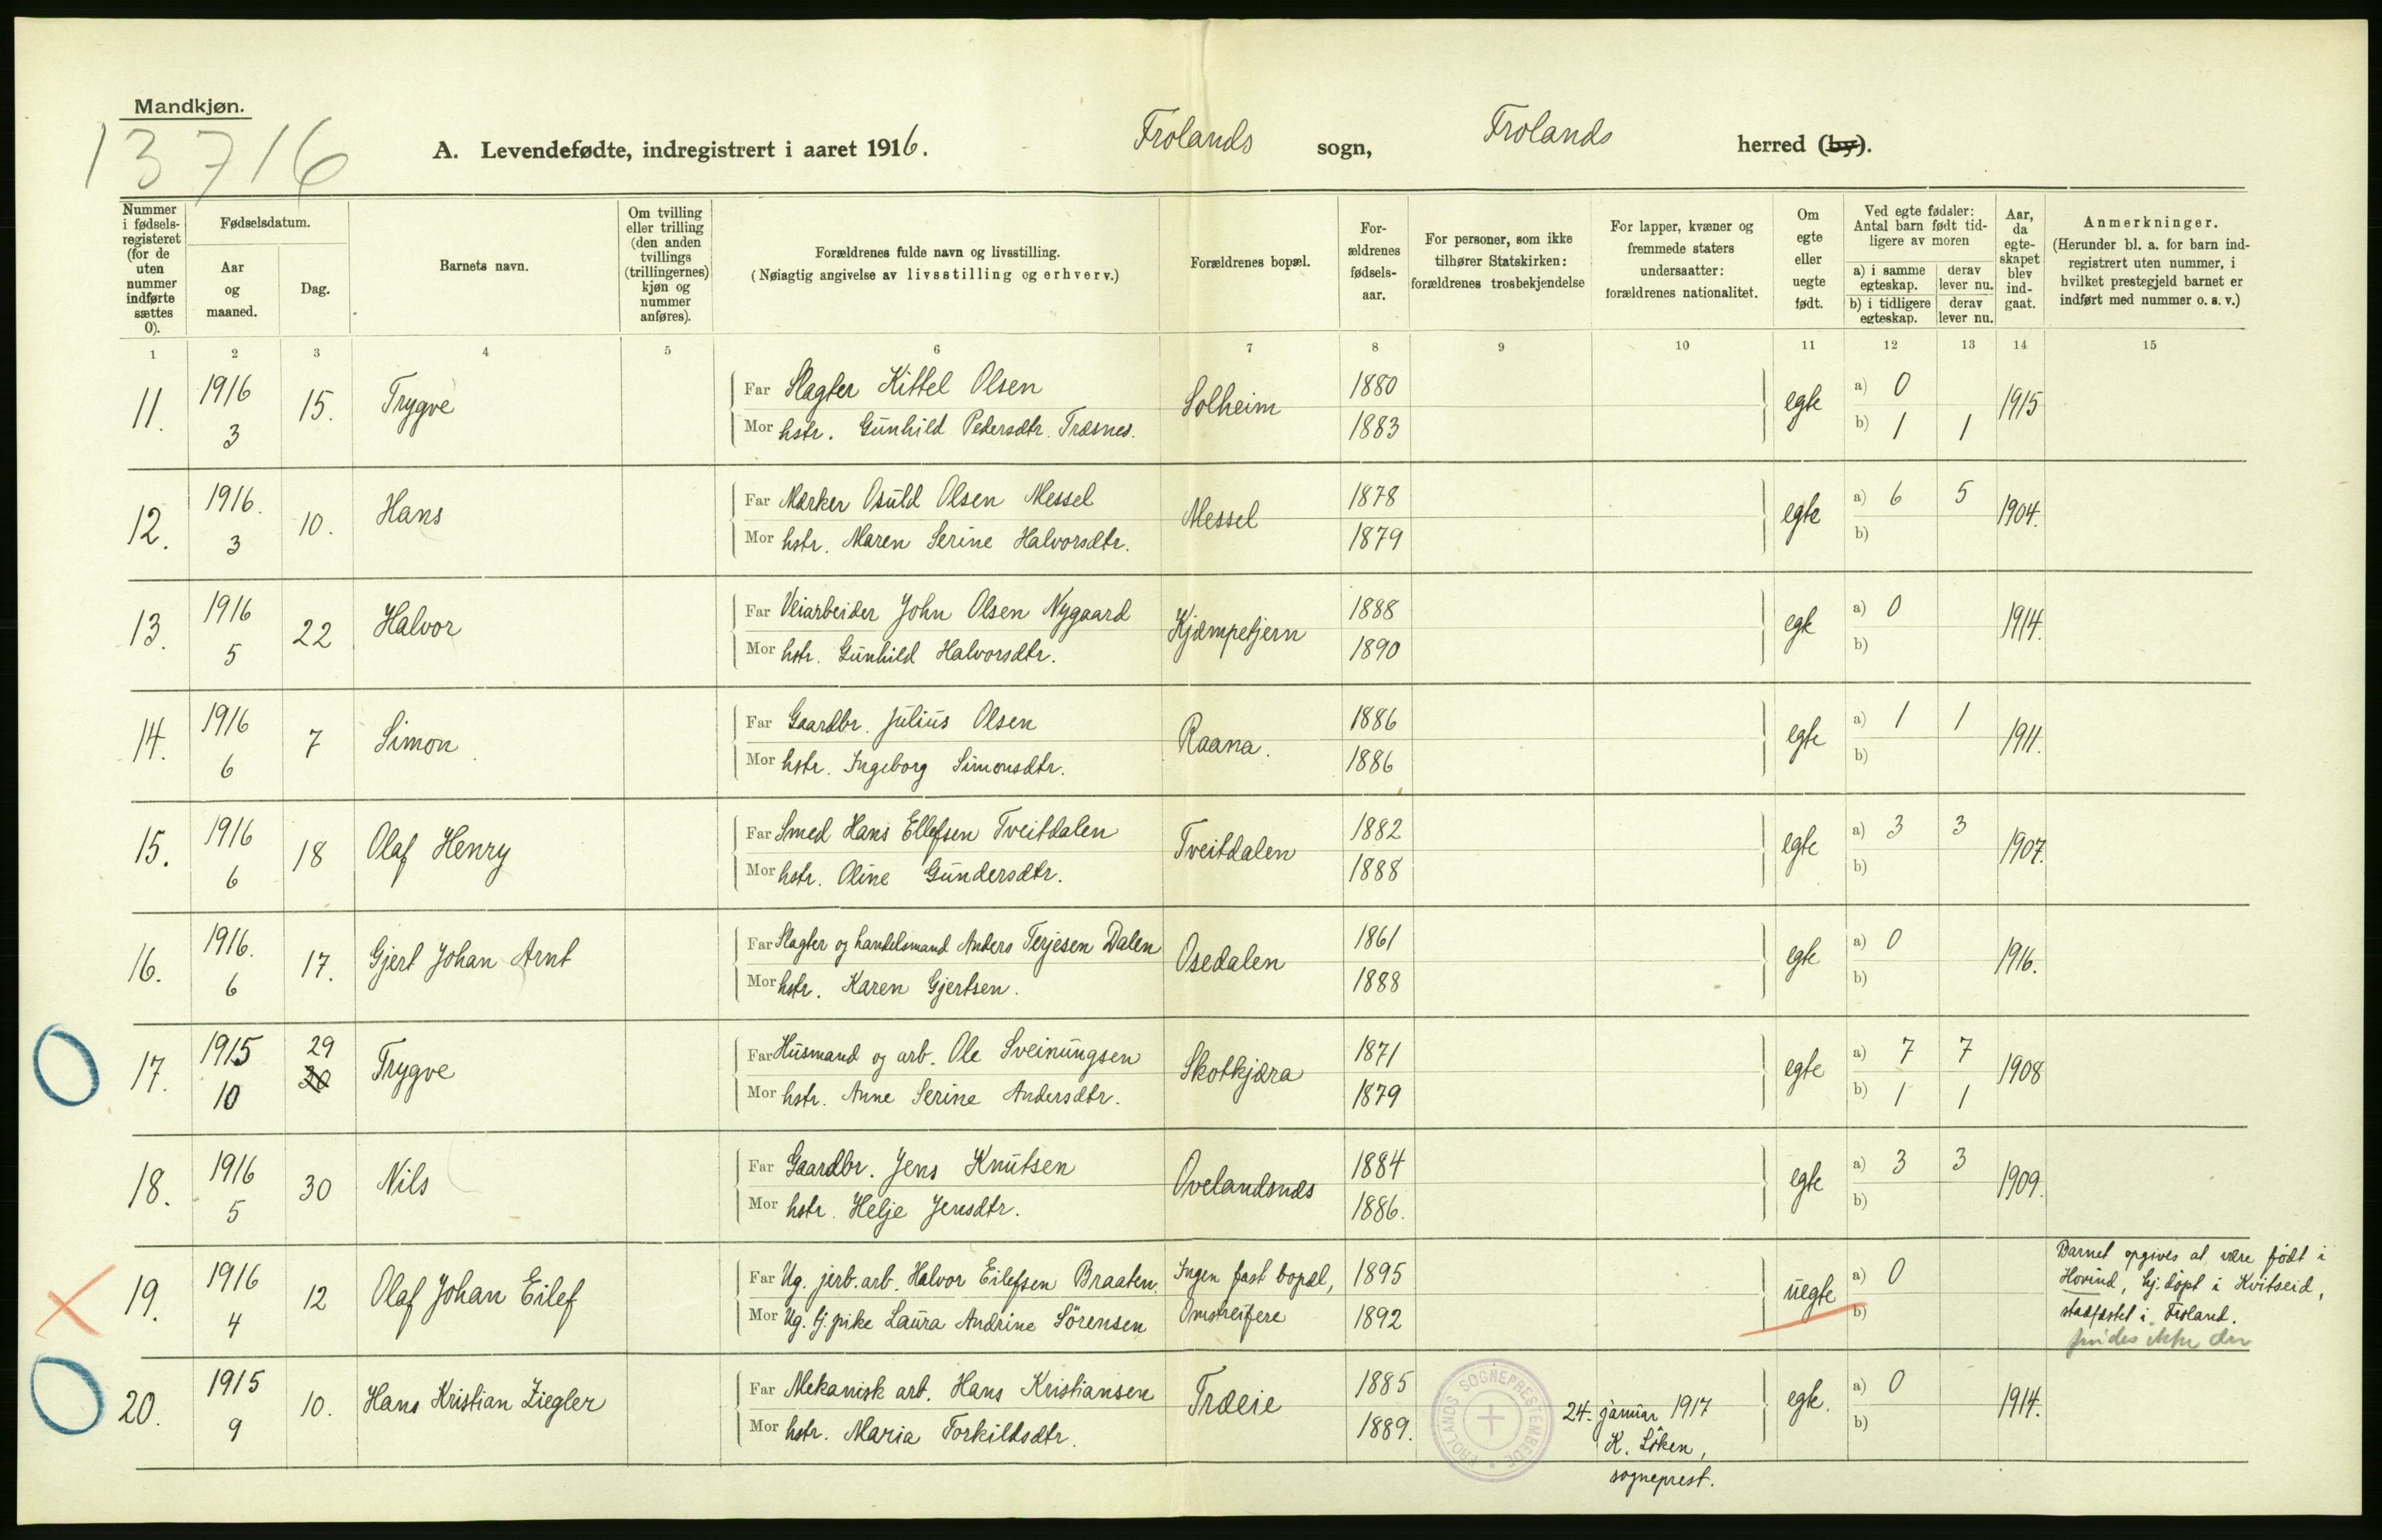 Mandkjøn.
13716
A. Levendefødte, indregistrert i aaret 1916. Frolands sogn, Frolands herred (by).
Nummer i fødsels-registeret (for de uten nummer indførte sættes 0).
Fødselsdatum.
Aar og maaned.
Dag.
Barnets navn.
Om tvilling eller trilling (den anden tvillings (trillingernes) kjøn og nummer anføres).
Forældrenes fulde navn og livsstilling.
(Nøiagtig angivelse av livsstilling og erhverv.)
Forældrenes bopæl.
For-ældrenes fødsels-aar.
For personer, som ikke tilhører Statskirken: forældrenes trosbekjendelse
For lapper, kvæner og fremmede staters undersaatter: forældrenes nationalitet.
Om egte eller uegte født.
Ved egte fødsler: Antal barn født tid-ligere av moren
a) i samme egteskap.
derav lever nu.
b) i tidligere egteskap.
derav lever nu.
Aar, da egte-skapet blev ind-gaat.
Anmerkninger.
(Herunder bl. a. for barn ind-registrert uten nummer, i hvilket prestegjeld barnet er indført med nummer o. s. v.)
1 2 3 4 5 6 7 8 9 10 11 12 13 14 15
11. 1916 3 15. Trygve Far Slagter Kittel Olsen Solheim 1880 egte a) 0 1915
Mor hstr. Gunhild Pedersdtr. Træsnes. 1883 b) 1 1
12. 1916. 3 10. Hans Far Mærker Osuld Olsen Messel Messel 1878 egte a) 6 5 1904.
Mor hstr. Maren Serine Halvorsdtr. 1879 b)
13. 1916 5 22 Halvor Far Veiarbeider John Olsen Nygaard Kjæmpetjern 1888 egte a) 0 1914.
Mor hstr. Gunhild Halvorsdtr. 1890 b)
14. 1916 6 7 Simon Far Gaardbr. Julius Olsen Raana. 1886 egte a) 1 1 1911.
Mor hstr. Ingeborg Simonsdtr. 1886 b)
15. 1916 6 18 Olaf Henry Far Smed Hans Ellefsen Tveitdalen Tveitdalen 1882 egte a) 3 3 1907.
Mor hstr. Oline Gundersdtr. 1888 b)
16. 1916. 6 17. Gjert Johan Arnt Far Slagter og handelsmand Anders Terjesen Dalen Osedalen 1861 egte a) 0 1916.
Mor hstr. Karen Gjertsen. 1888 b)
17. 1915 10 29 30 Trygve Far Husmand og arb. Ole Sveinungsen Skotkjæra 1871 egte a) 7 7 1908
Mor hstr. Anne Serine Andersdtr. 1879 b) 1 1
18. 1916 5 30 Nils Far Gaardbr. Jens Knutsen Ovelandsnes 1884 egte a) 3 3 1909.
Mor hstr. Helje Jensdtr. 1886. b)
19. 1916 4 12 Olaf Johan Eilef Far Ug. jerb. arb. Halvor Eilefsen Braaten. Ingen fast bopæl, 1895 uegte a) 0 Barnet opgives at være født i
Hovind, hj. døpt i Kvitseid,
Mor Ug. tj. pike Laura Andrine Sörensen Omstreifere 1892 b) stadfæstet i Froland.
findes ikke der
20. 1915 9 10. Hans Kristian Ziegler Far Mekanisk arb. Hans Kristiansen Træeie 1885 egte. a) 0 1914.
Mor hstr. Maria Torkildsdtr. 1889. b)
FROLANDS SOGNEPRESTEMBEDE
24. januar 1917
K. Löken,
sogneprest.